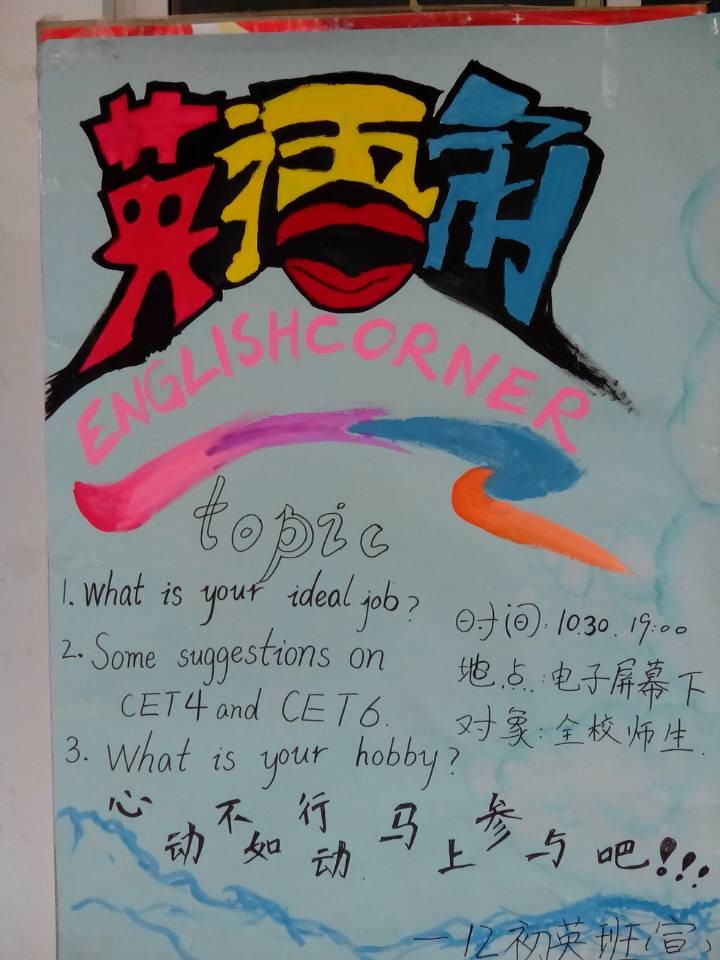 英语角
ENGLISH CORNER
topic
1. What is your ideal job?
2. Some suggestions on
CET4 and CET6.
3. What is your hobby?
时间: 10.30. 19:00
地点: 电子屏幕下
对象: 全校师生.
心动不如行动 马上参与吧!!!
—12初英班(宣)